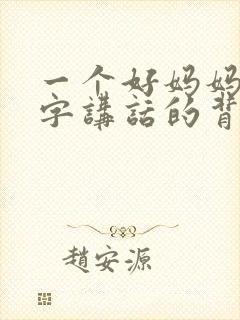 一个好妈妈
字講話的背
趙安源